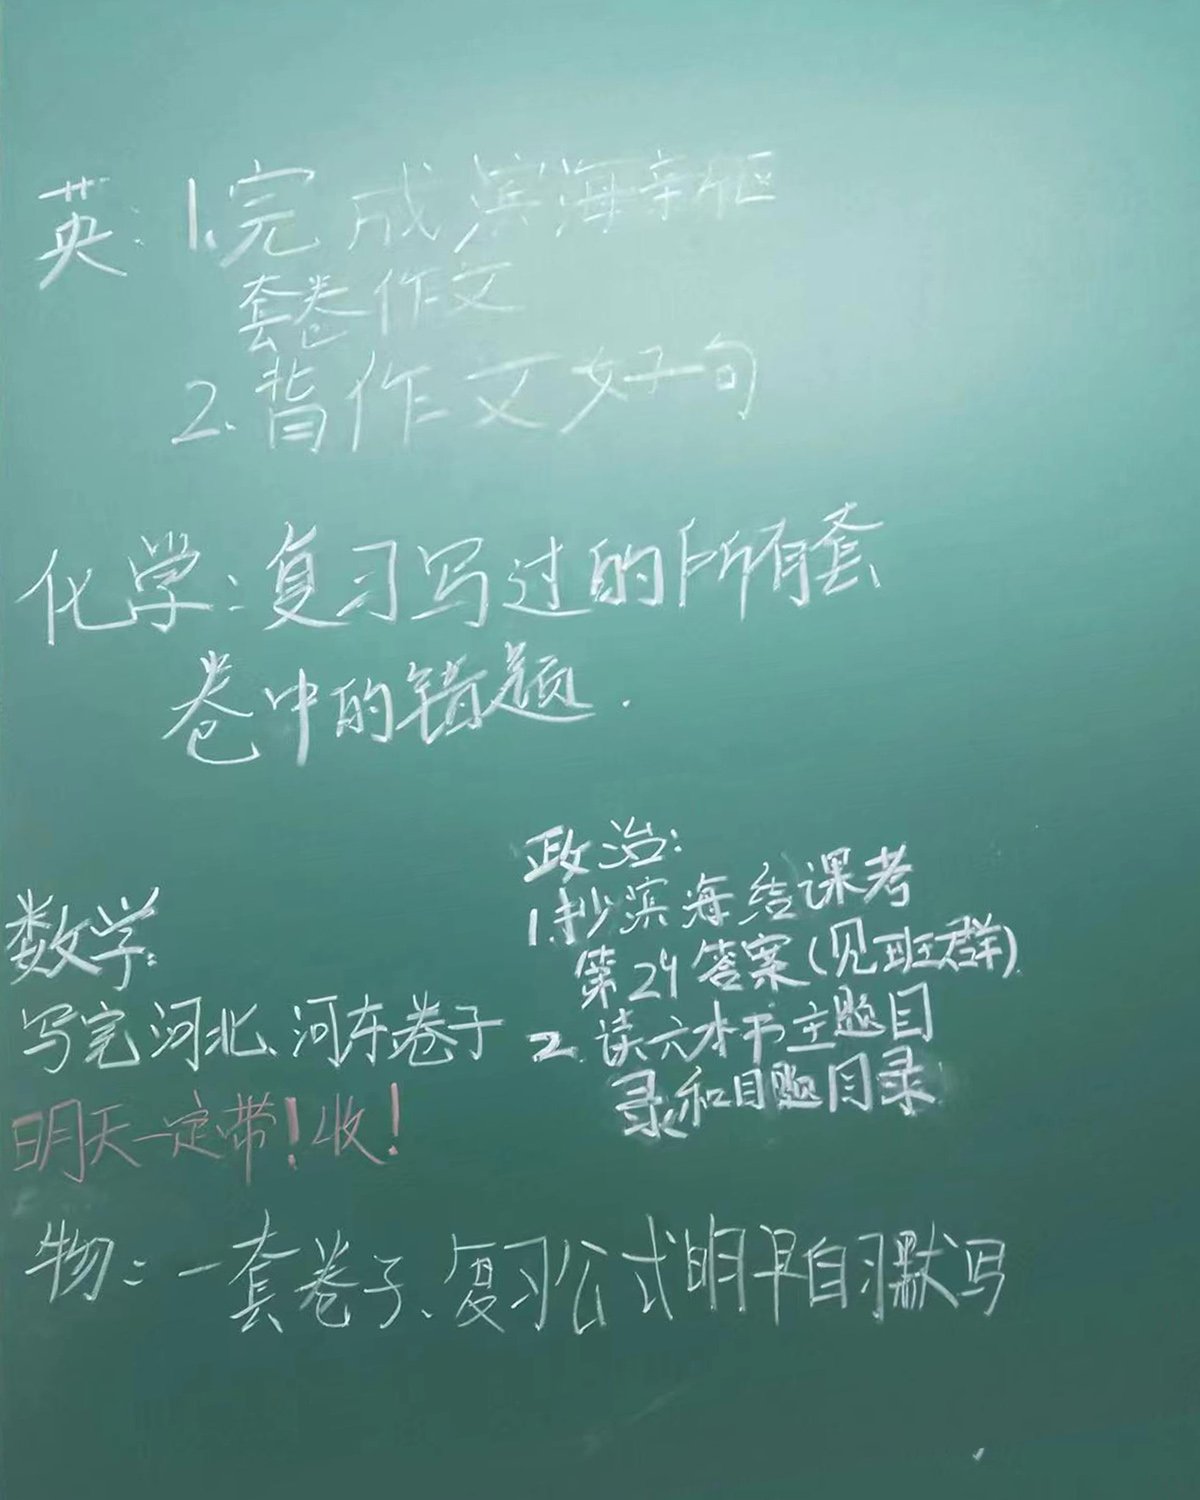 英：1.完成滨海新区
套卷作文
2.背作文好句
化学：复习写过的所有套
卷中的错题.
政治：
1.抄滨海结课考
第29答案(见班群)
2.读六本书主题目
录和目题目录
数学：
写完河北、河东卷子
明天一定带！收！
物：一套卷子、复习公式明早自习默写